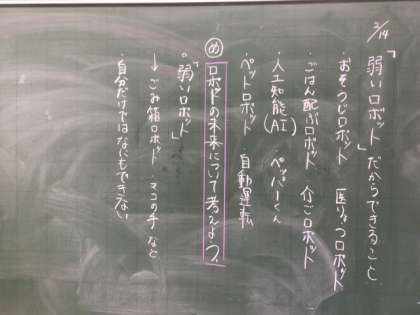 2/14
「弱いロボット」だからできること
・おそうじロボット 医りょうロボット
・ごはん配ぶロボット 介ごロボット
・人工知能(AI) ・ペッパーくん
・ペットロボット 自動運転
め ロボットの未来について考えよう。
。「弱いロボット」
→ごみ箱ロボット・マコの手など
・自分だけではなにもできない